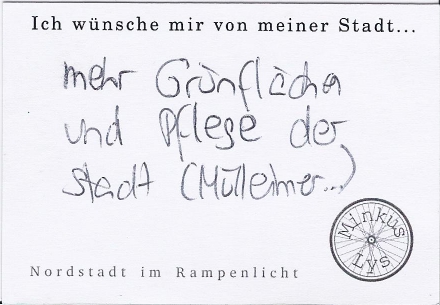 Ich wünsche mir von meiner Stadt...
mehr Grünflächen
und Pflege der
Stadt (Mülleimer...)
Minkus
Lys
Nordstadt im Rampenlicht